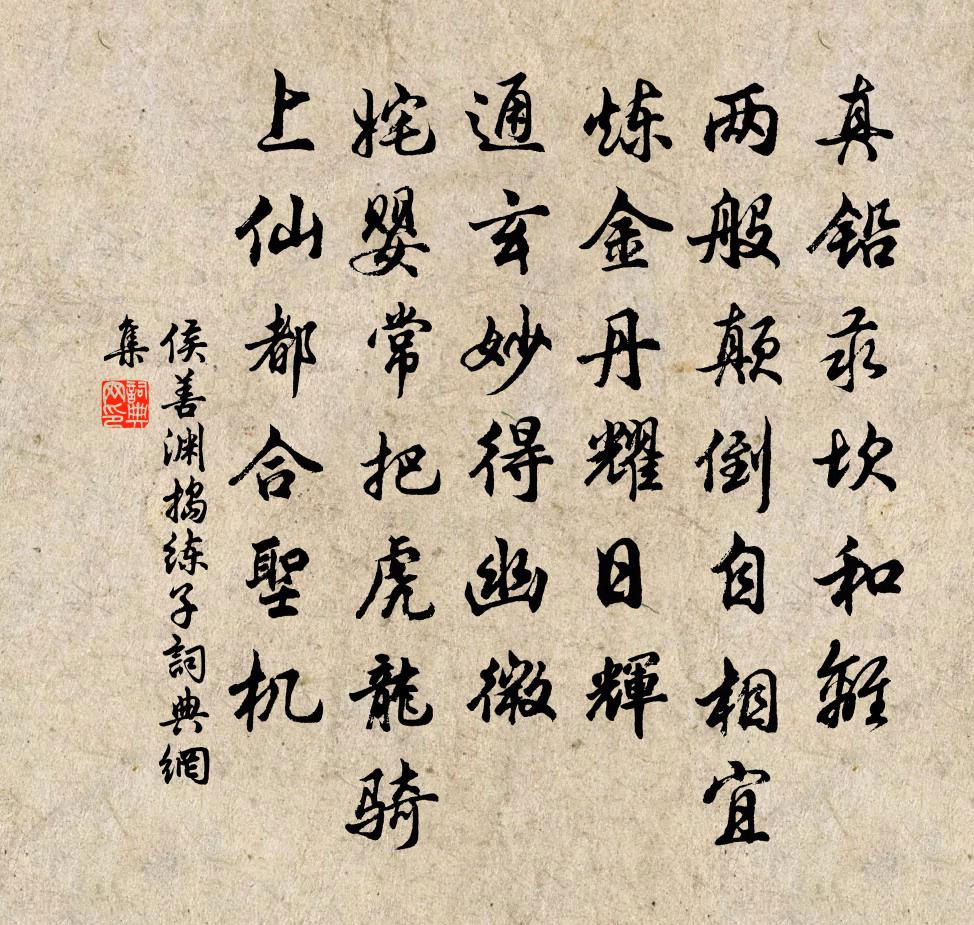 真鉛汞坎和離
两般顛倒自相宜
炼金丹耀日輝
通玄妙得幽微
姹婴常把虎龍骑
上仙都合聖机
侯善渊搗练子詞典網
集
詞典
网印